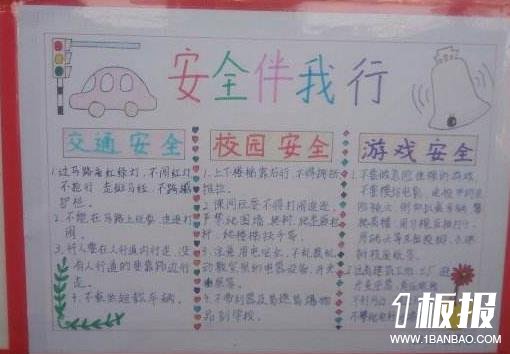 安全伴我行
交通安全
1.过马路看红绿灯,不闯红灯
不能行 走斑马线,不跨越
护栏。
2.不能在马路上玩耍、追逐打
闹。
3.行人要在人行道内行走,没
有人行道的要靠路边行
走。
4.不乘坐超载车辆。
校园安全
1.上下楼梯靠右行,不得拥挤
推拉。
2.课间玩耍不得打闹追逐,
严禁爬围墙、爬树、爬篮球
杆、爬楼梯扶手等。
3.注意用电安全,不乱
动教室里的电器设备,开关
4.不带利器及易燃易爆物
品到学校。
游戏安全
1.不要做危险的游戏
不要模仿电影、电视中的危
险镜头,例如扒乘车辆、攀
爬高楼、用刀棍互相打斗、
2.
不
1板报
WWW.1BANBAO.COM